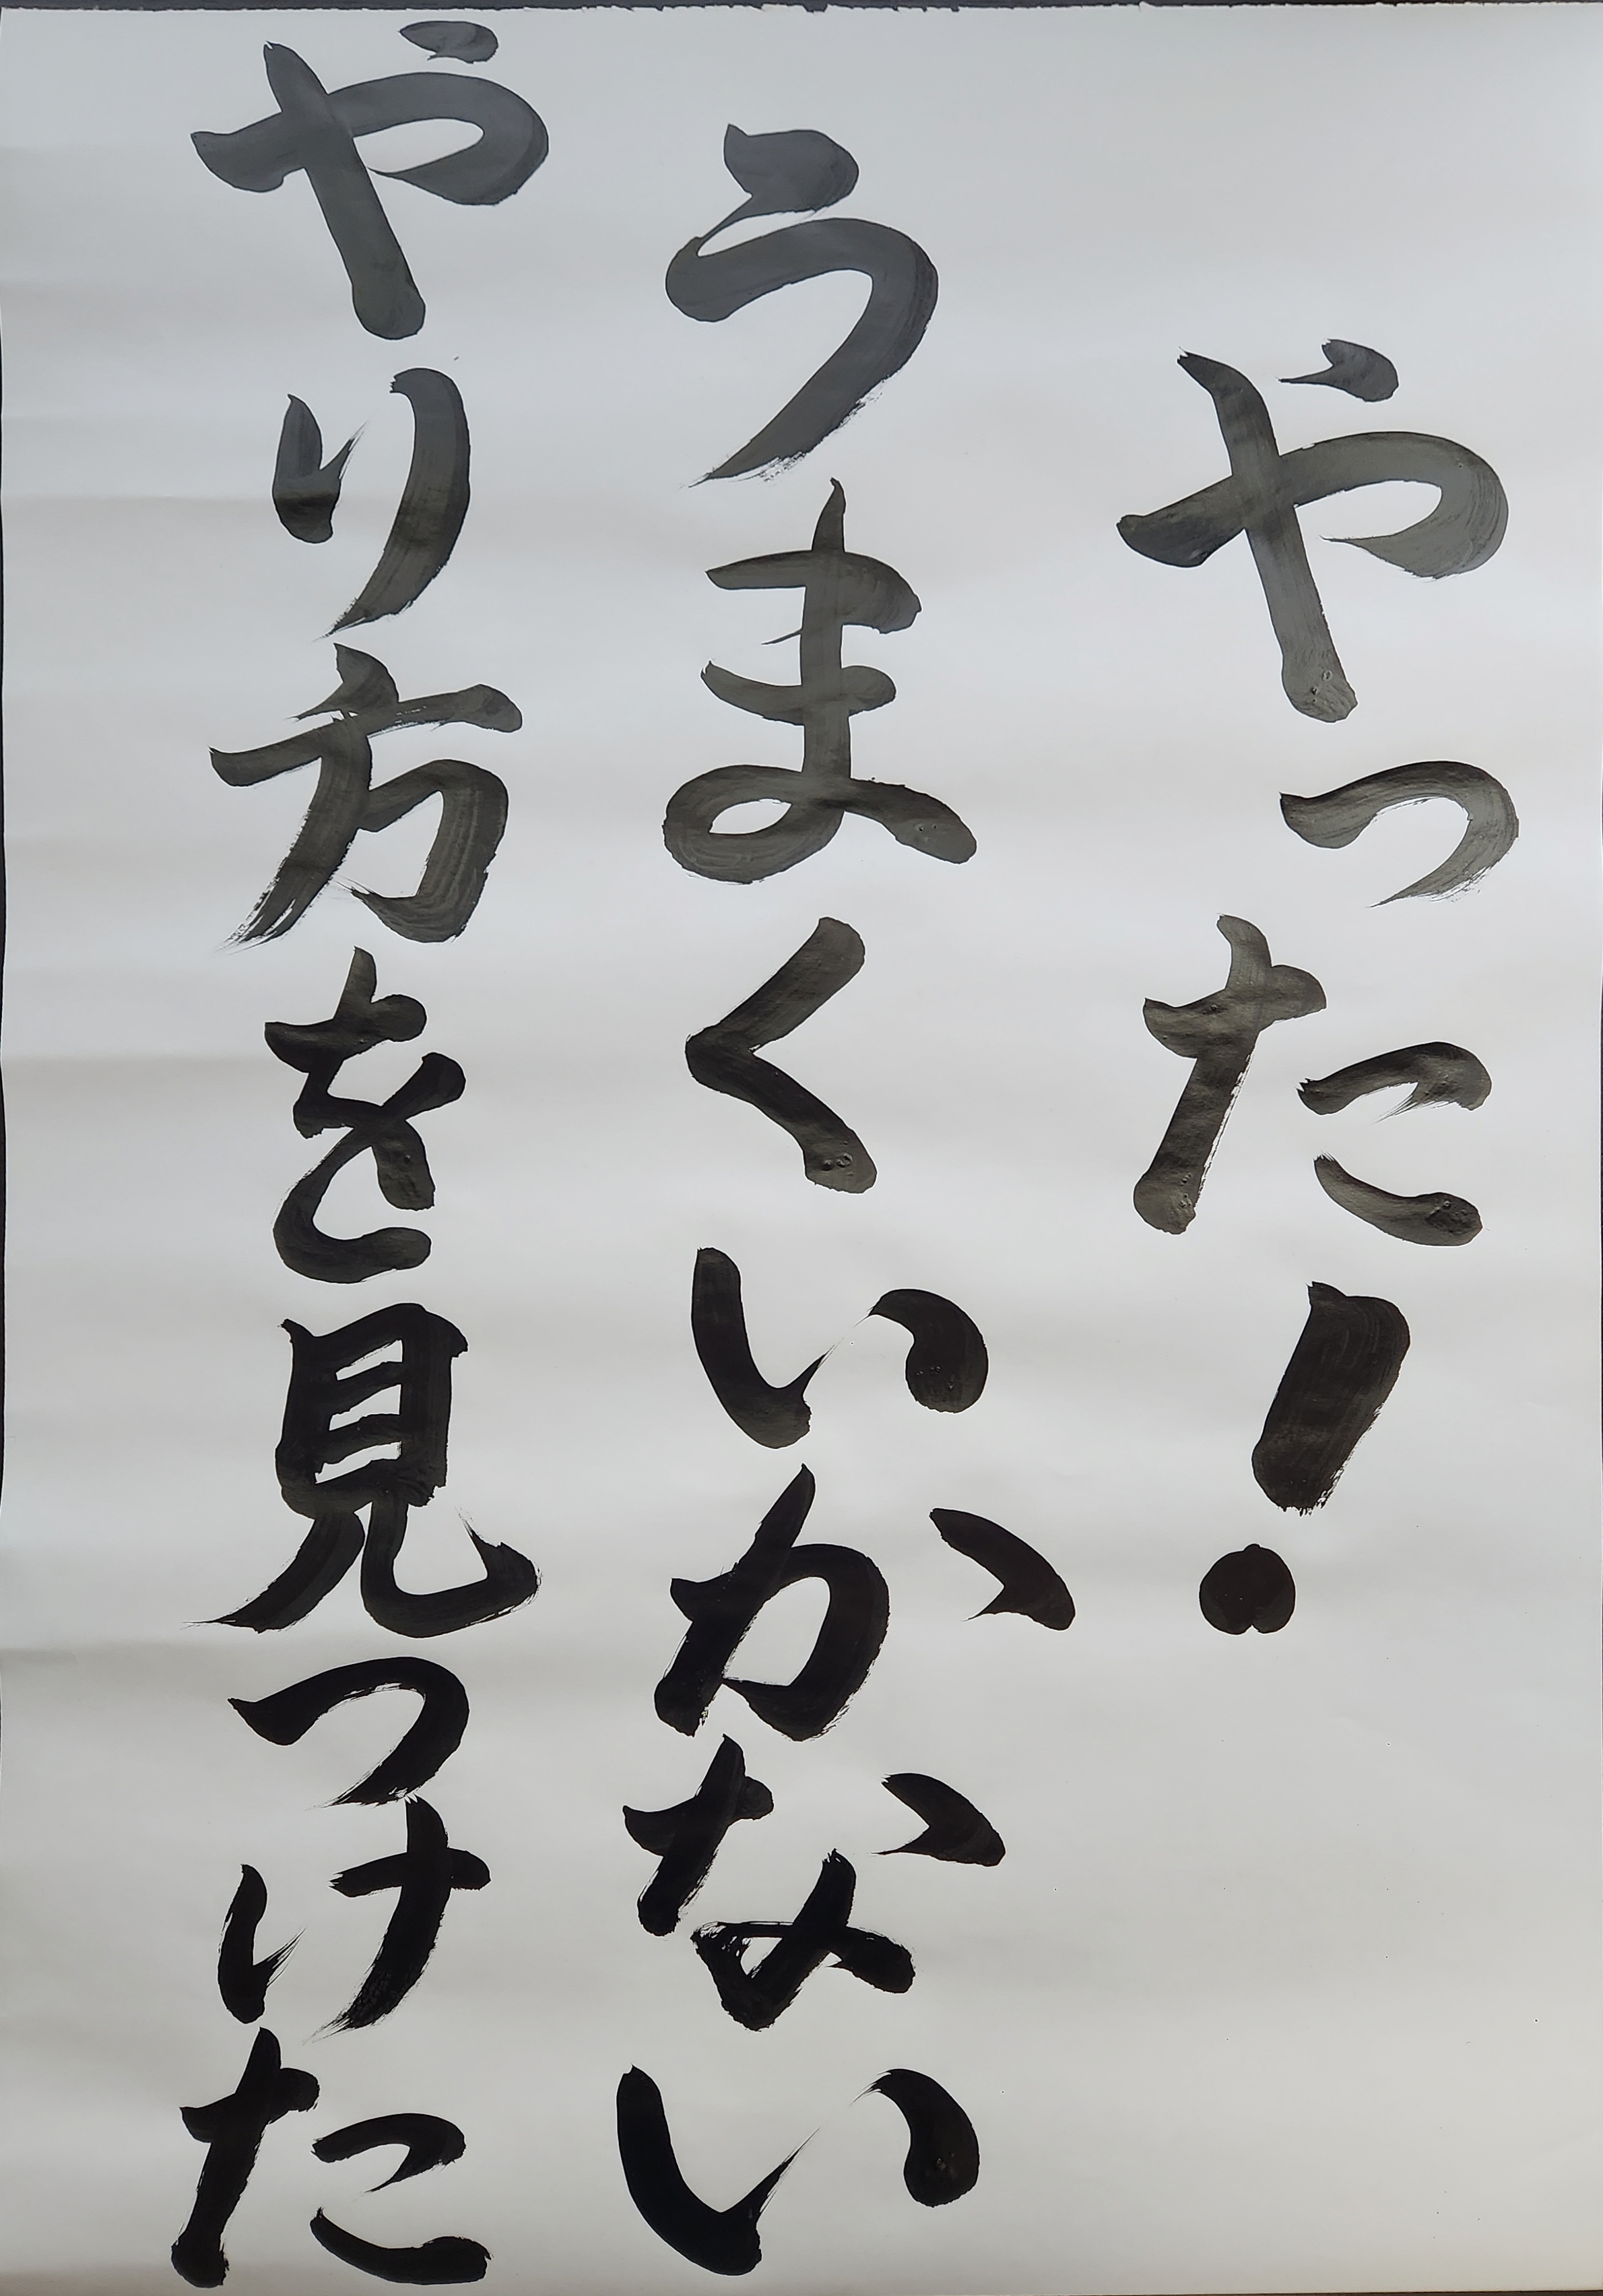 やった!
うまくいかない
やり方を見つけた